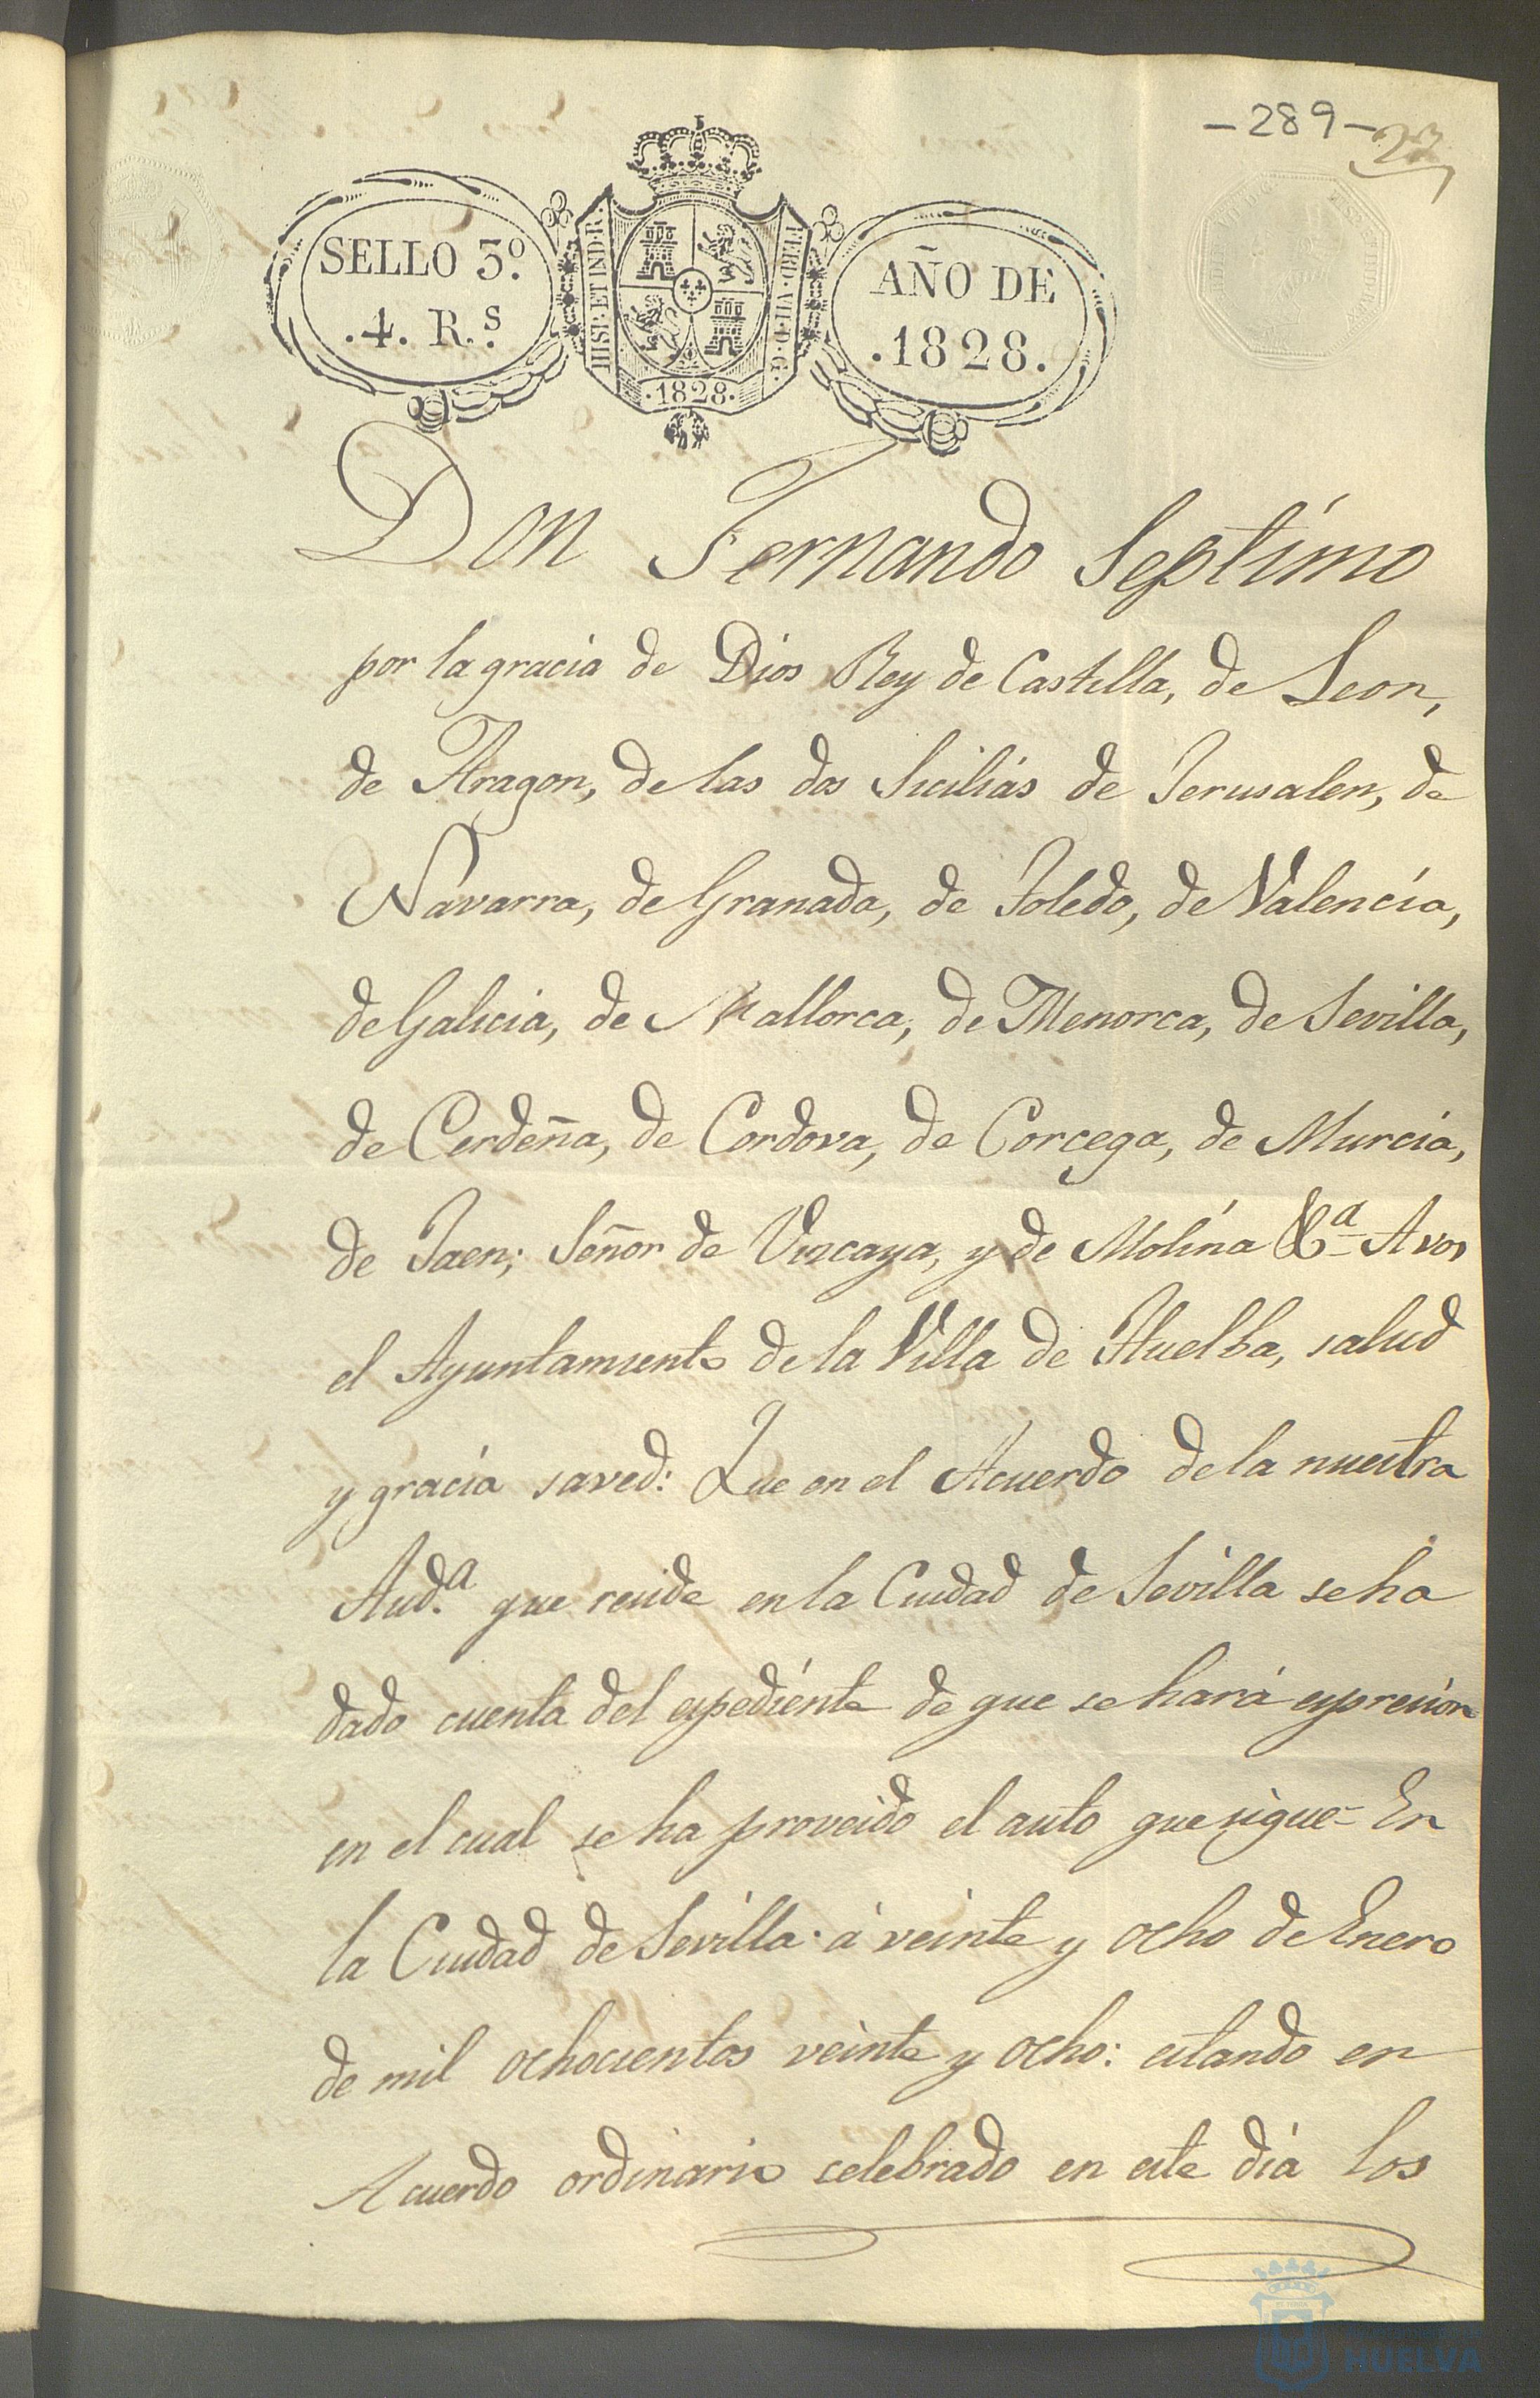 -289-
23
SELLO 3º.
.4. R.s
HISP. ET IND. R.
FERD. VII. D. G.
.1828.
AÑO DE
.1828.
Don Fernando Septimo
por la gracia de Dios Rey de Castilla, de Leon,
de Aragon, de las dos Sicilias de Jerusalen, de
Navarra, de Granada, de Toledo, de Valencia,
de Galicia, de Mallorca, de Menorca, de Sevilla,
de Cerdeña, de Cordova, de Corcega, de Murcia,
de Jaen; Señor de Vizcaya, y de Molina &a A vos
el Ayuntamiento de la Villa de Huelba, salud
y gracia saved: Que en el Acuerdo de la nuestra
Aud.a que reside en la Ciudad de Sevilla se ha
dado cuenta del espediente de que se hará espresion
en el cual se ha proveido el auto que sigue= En
la Ciudad de Sevilla á veinte y ocho de Enero
de mil ochocientos veinte y ocho: estando en
Acuerdo ordinario celebrado en este dia los
HUELVA